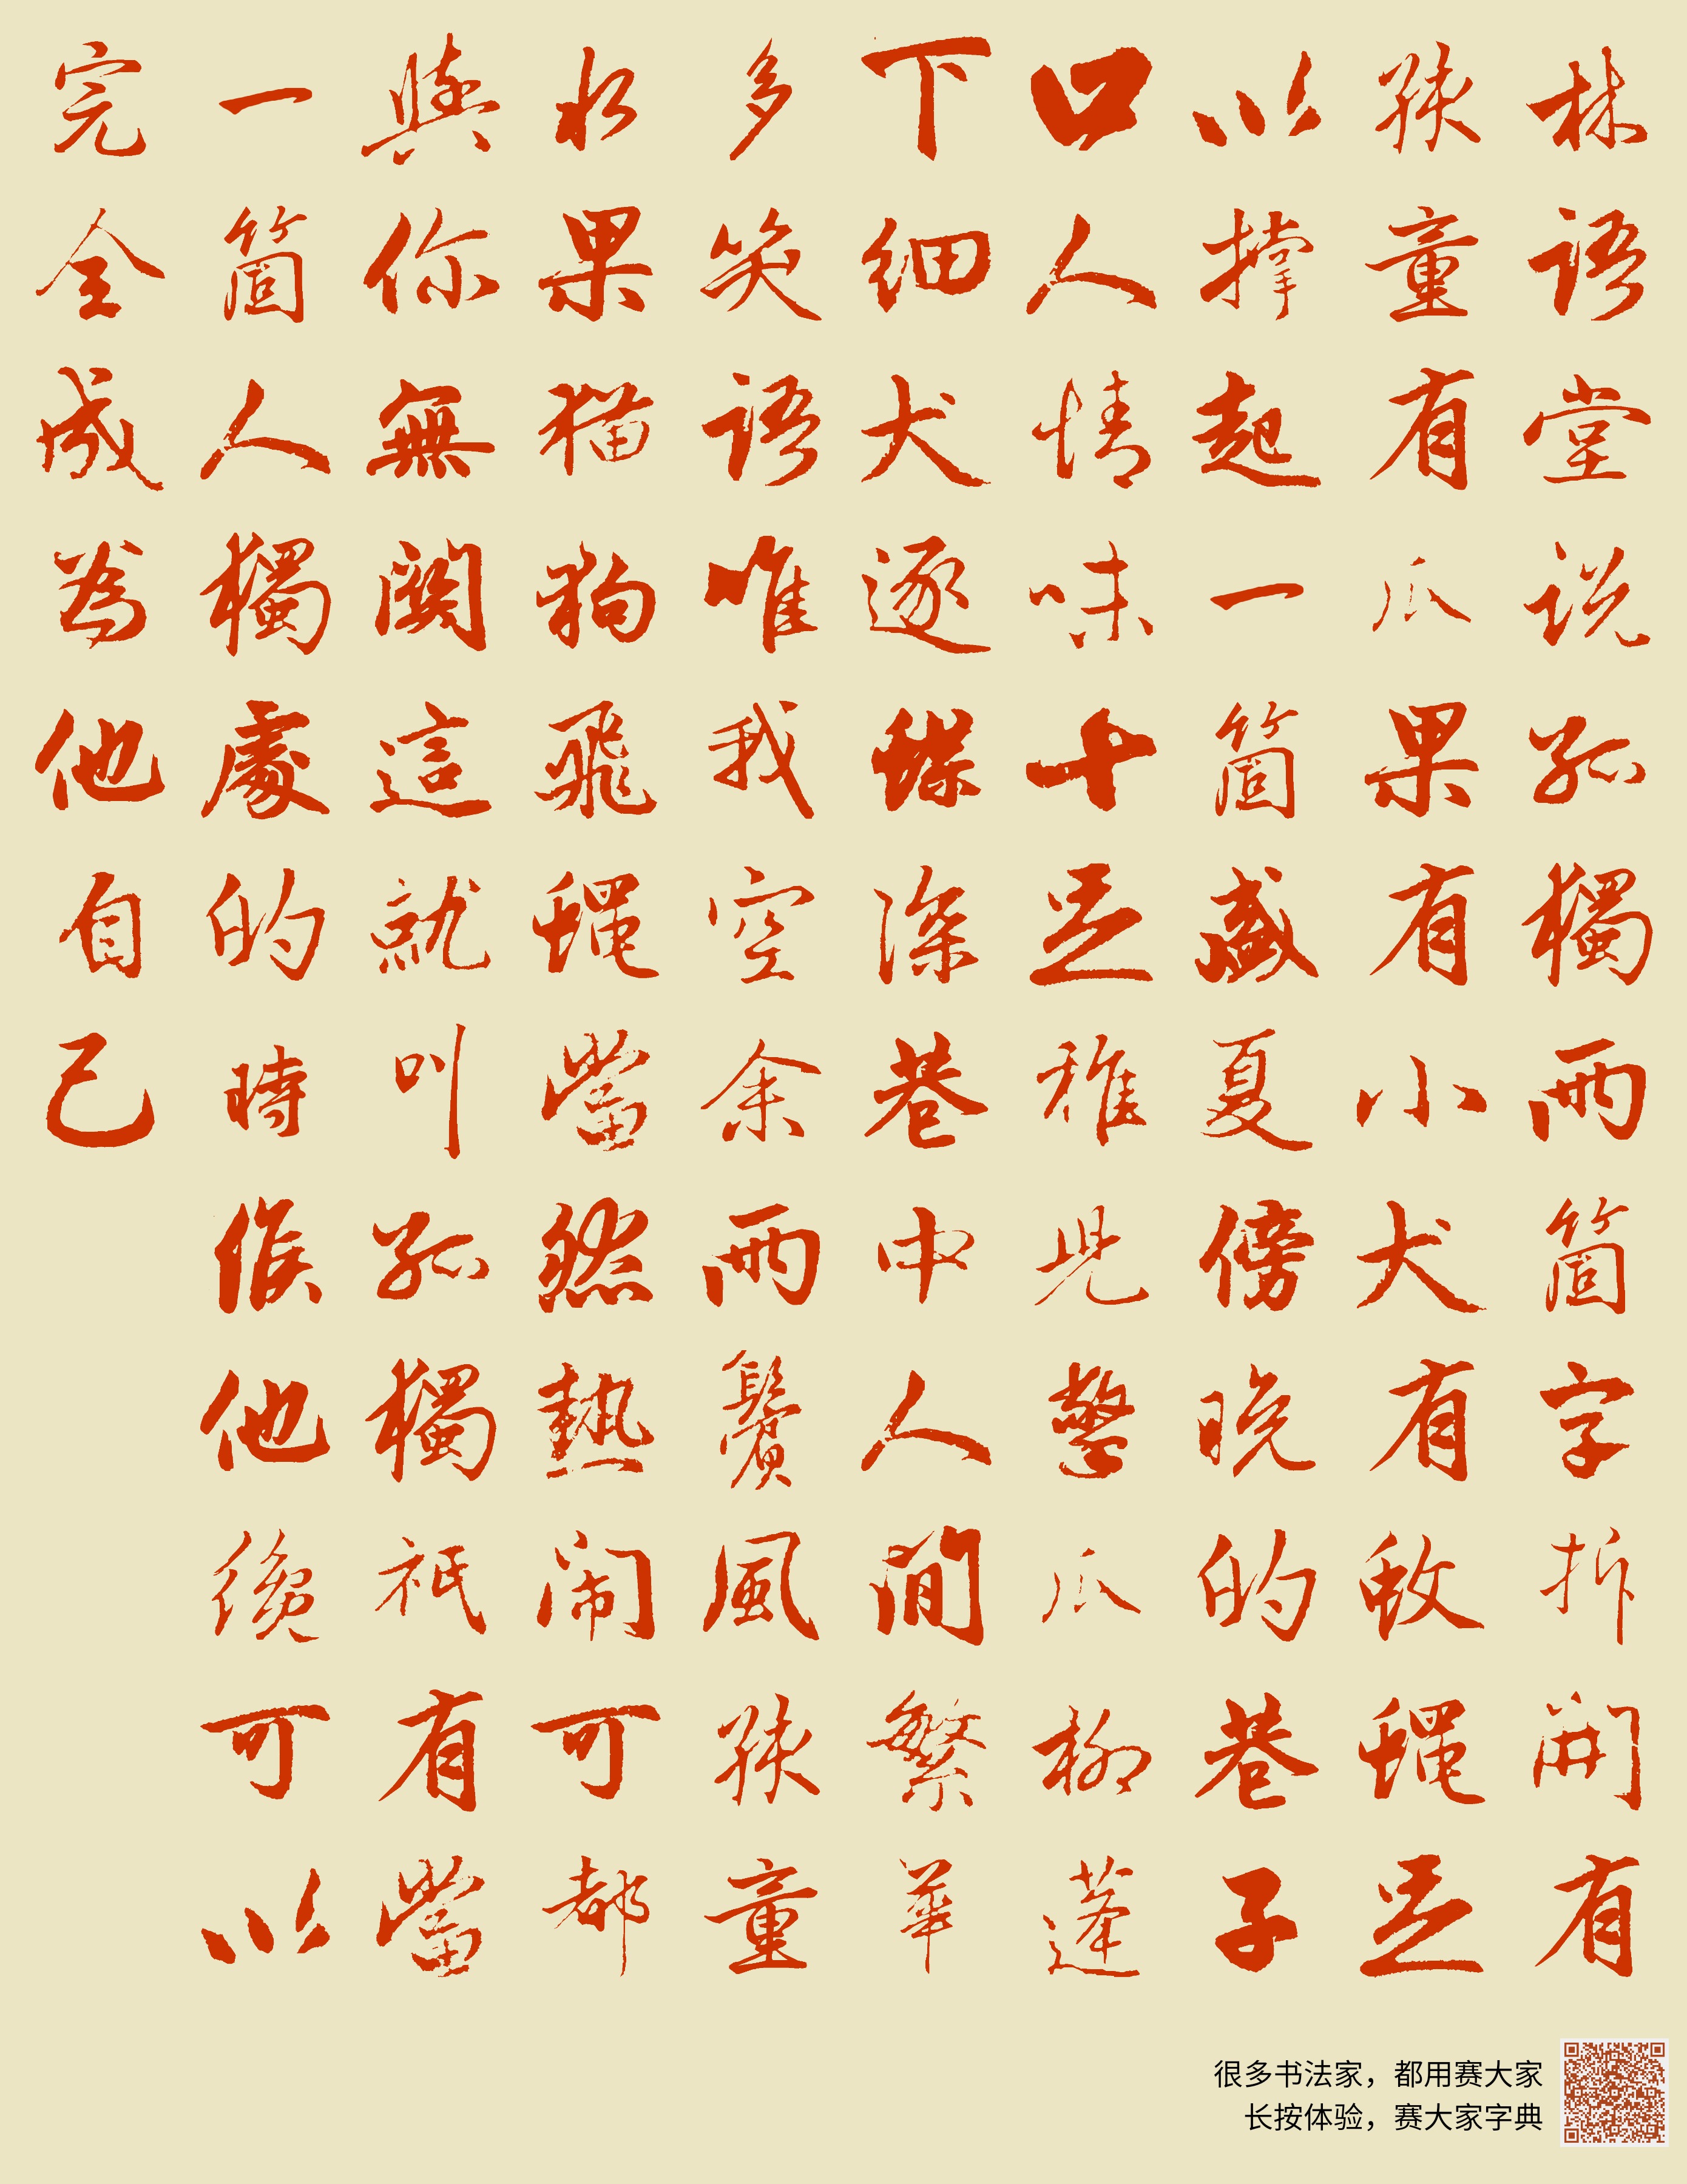 林语堂说孤獨两箇字拆開有
孩童有瓜果有小犬有蚊蝇足
以撐起一箇盛夏傍晚的巷子
口人情味十足稚兒擎瓜柳蓬
下细犬逐蝶深巷中人间繁華
多笑语唯我空余两鬢風孩童
水果猫狗飛蝇當然熱闹可都
與你無關這就叫孤獨祇有當
一箇人獨處的時候他纔可以
完全成為他自己
很多书法家，都用赛大家
长按体验，赛大家字典